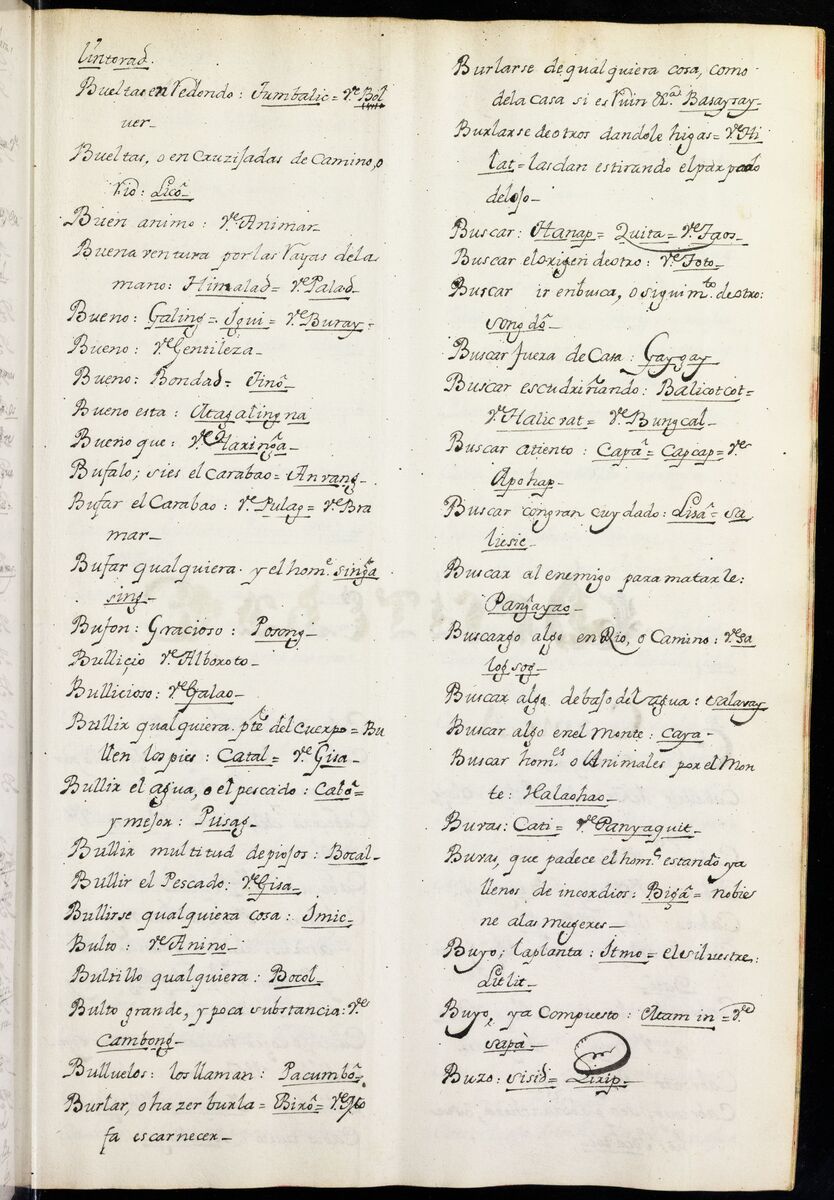 lintorad.
Bueltas en redondo: Tumbalic= Vᵉ Bol
ver_
Bueltas, o en Cruzijadas de Camino, o
rio: Licô_
Buen animo: Vᵉ Animar_
Buena ventura por las rayas dela
mano: Himalad= Vᵉ Palad_
Bueno: Galing= Igui= Vᵉ Buray=
Bueno: Vᵉ Gentileza_
Bueno: Bondad= Tinô_
Bueno esta: Atagalingna
Bueno que: Vᵉ Haringa_
Bufalo; sies el Carabao= Anvang_
Bufar el Carabao: Vᵉ Pulag= Vᵉ Bra
mar_
Bufar qualquiera. y el homᵉ singa
sing_
Bufon: Gracioso: Posong_
Bulliçio Vᵉ Alboroto_
Bullicioso: Vᵉ Galao_
Bullir qualquiera ptᵉ del cuerpo= Bu
llen los pies: Catal= Vᵉ Gisa_
Bullir el agua, o el pescado: Catô=
y mejor: Pusag_
Bullir multitud depiojos: Bocal_
Bullir el Pescado: Vᵉ Gisa_
Bullirse qualquiera cosa: Imic_
Bulto: Vᵉ Anino_
Bultillo qualquiera: Bocol_
Bulto grande, y poca substancia: Vᵉ
Cambong_
Bulluelos: los llaman: Pacumbô_
Burlar, o hazer burla= Birô= Vᵉ Mo
fa escarnecer_
Burlarse de qualquiera cosa, como
dela Casa si es ruin &ᵃ Basaysay_
Burlarse deotros dandole higas= Vᵉ Hi
lat= lasdan estirando el parpado
delojo_
Buscar: Hanap= Quita= Vᵉ Taos_
Buscar el origen deotro: Vᵉ Toto_
Buscar ir enbusca, o siguimᵗᵒ deotro:
songdô_
Buscar fuera de Casa: Gaygay
Buscar escudriñando: Balicotcot=
Vᵉ Halicvat= Vᵉ Bungcal_
Buscar atiento: Capâ= Capcap= Vᵉ
Apohap_
Buscar congran cuydado: Lisâ= sa
licsic_
Buscar al enemigo para matarle:
Pangayao_
Buscargo algo en Rio, o Camino: Vᵉ sa
logsog_
Buscar algo debajo del agua: salavay
Buscar algo enel monte: Caya_
Buscar homᵉˢ o Animales por el Mon
te: Halaohao_
Buvas: Cati= Vᵉ Panyaquit_
Buvas, que padece el homᵉ estando ya
llenos de incordios: Bigâ= nobie
ne alas mugeres_
Buyo; laplanta: Itmo= elsilvestre:
Litlit_
Buyo, ya Compuesto: Atamin= Vᵉ
sapà_
Buzo: sisid= Lirip_